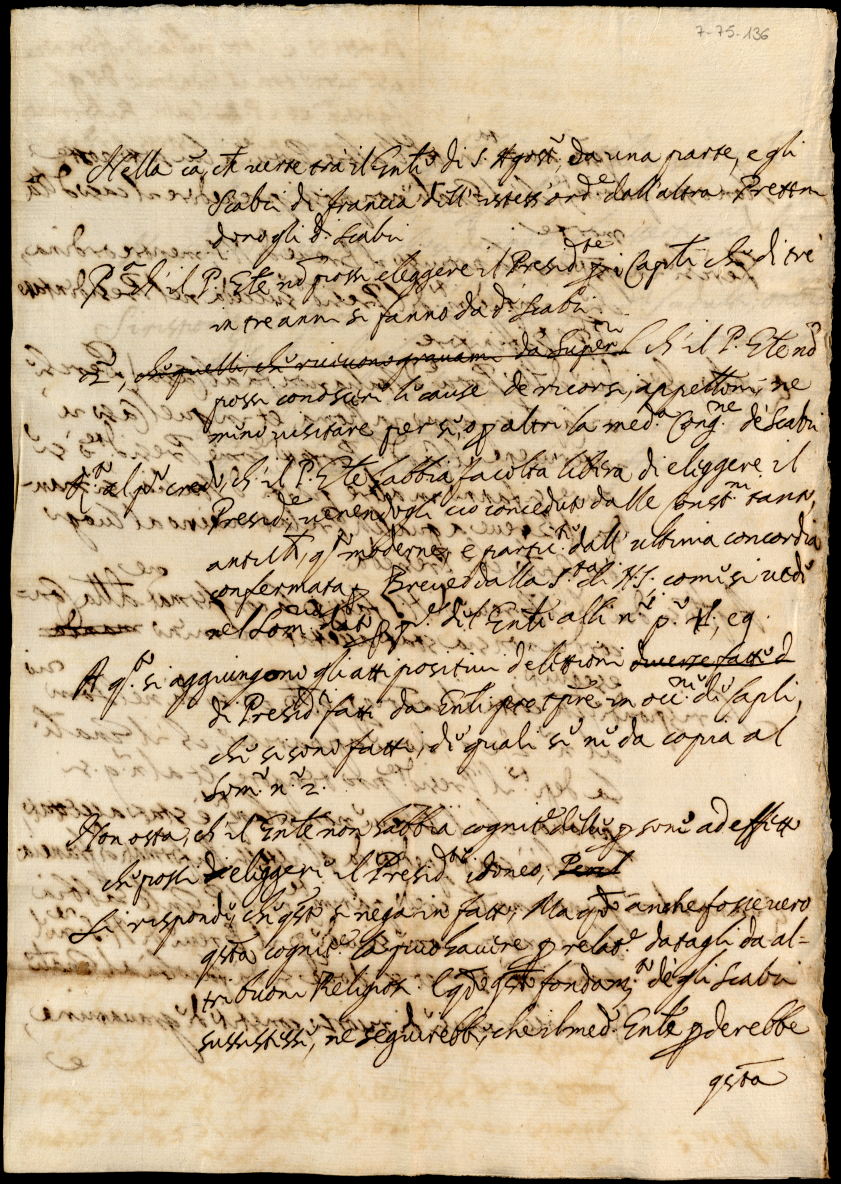 7-75-136
Nella cā, ch̄ verte trà il Gnlē di S. Agostº, da una parte, e gli
Scalzi di francia dell'istess' ord.e dall'altra. Pretten
donogli d.i Scalzi
P.º ch̄ il P. Gtle nō possi eleggere il Presid.te p i Capli che di trè
in tre anni si fanno da d.i Scalzi.
2.º, che quelli, che ricevono gravami da Super.ri ch'il P. Gtle nō
possi conoscere le cause de ricorsi, appellōni, ne
meno visitare per se, o p altri la med.a Cong.ne de Scalzi
al p.º cred., ch'il P. Gtle habbia facoltà libera di eliggere il
Presid.te venendogli ciò conceduto dalle Const.ni tanto
antich̄, q.to moderne, e partic.te dall'ultima concordia
confermata p Breve dalla S.tà di N.S., come si vede
nel Som.
A q.to si aggiungono gli atti positivi d'elettioni diverse fatte d
di Presid.ti fatti da Gnli pro tpre in occ.ne di Capli,
che si sono fatti, de quali se ne dà copia al
Som.º n.º 2.
Non osta, ch'il Gnle non habbia cognit.e delle psone ad effetto
che possi di eliggere il Presid.te idoneo, Perch
Si risponde, ch'qsto si nega in fatto; Ma q.do anche fosse vero
qsta cognit.e la può havere p relat.e datagli da al=
tri buoni Religiosi. E q.do qsto fondam.to degli Scalzi
sussistesse, ne seguirebbe, che il med. Gnle pderebbe
qsta